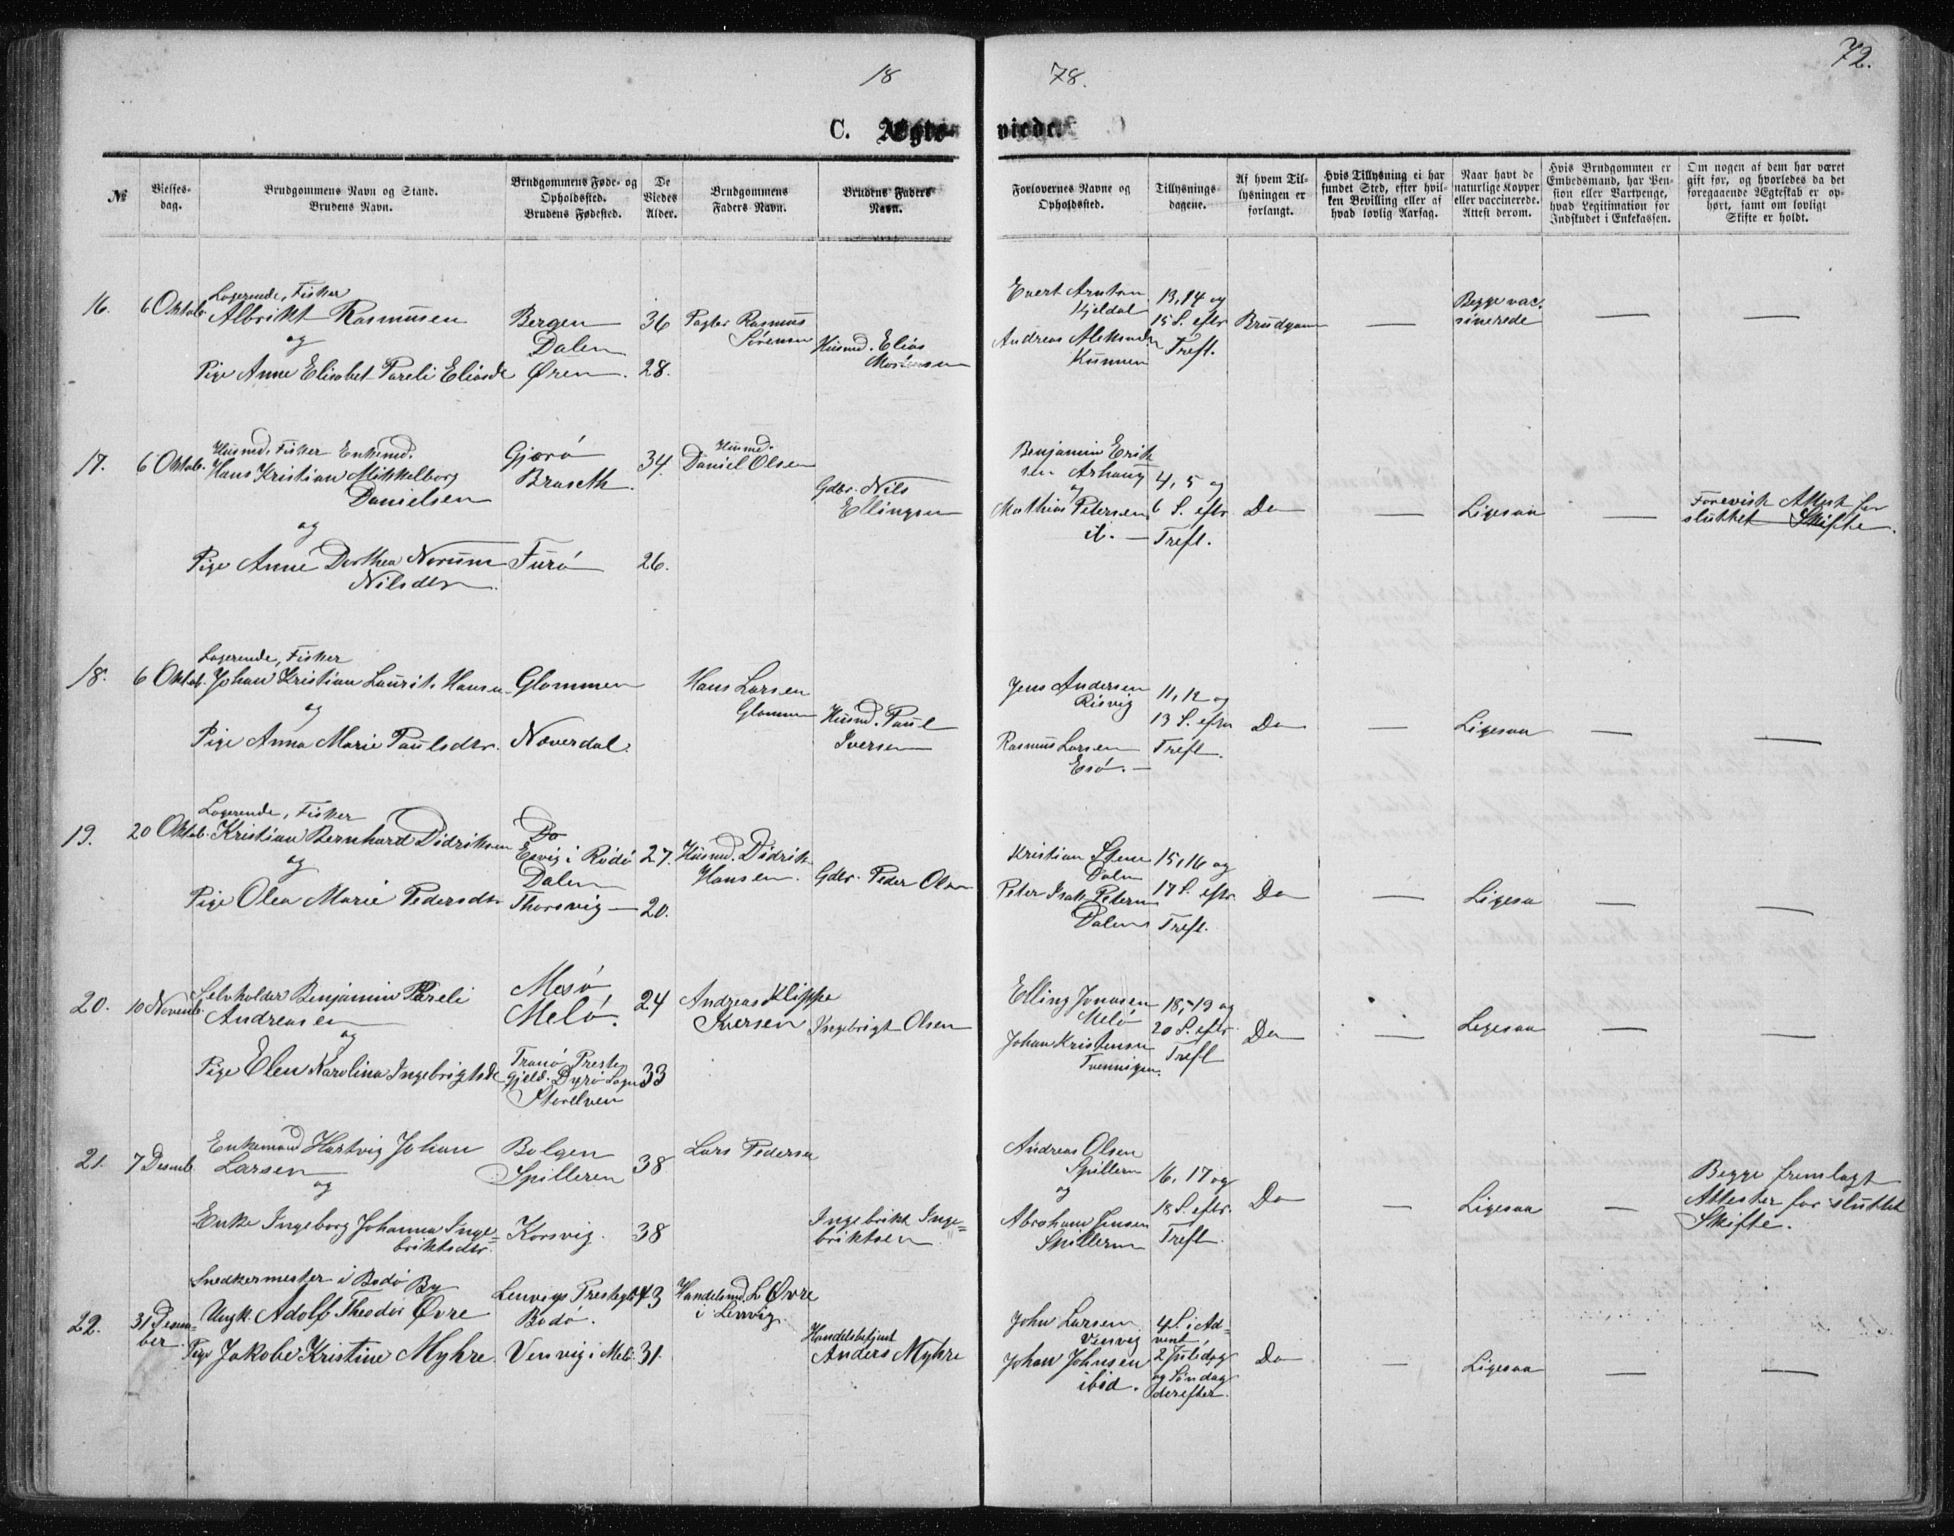 18 78. 72.
C. Ægte- viede.
№
Vielses-
dag.
Brudgommens Navn og Stand.
Brudens Navn.
Brudgommens Føde- og
Opholdssted.
Brudens Fødested.
De
Viedes
Alder.
Brudgommens
Faders Navn.
Brudens Faders
Navn.
Forlovernes Navne og
Opholdssted.
Tillysnings-
dagene.
Af hvem Til-
lysningen er
forlangt.
Hvis Tillysning ei har
fundet Sted, efter hvil-
ken Bevilling eller af
hvad lovlig Aarsag.
Naar havt de
naturlige Kopper
eller vaccinerede.
Attest derom.
Hvis Brudgommen er
Embedsmand, har Pen-
sion eller Vartpenge,
hvad Legitimation for
Indskudet i Enkekassen.
Om nogen af dem har været
gift før, og hvorledes da det
foregaaende Ægteskab er op-
hørt, samt om lovligt
Skifte er holdt.
16. 6 Oktob.
Logerende, Fisker
Albrikt Rasmusen
og
Pige Anne Elisabet Pareli Eliasd
Bergen
Dalen
Øren
36
28.
Pagter Rasmus
Sørensen
Husmd. Elias
Evert Arntsen
Kjeldal
Andreas Aleksander
Kunnen
13, 14 og
15 S. eftr
Trefl.
Brudgom
—
Begge vac-
sinerede
—
—
17. 6 Oktob.
Husmd. Fisker Enkemd.
Hans Kristian Mikkelborg
Danielsen
og
Pige Anne Dorthea Norum
Nilsdtr.
Gjærø
Braseth
Furø
34.
26.
Husmd.
Daniel Olsen
Gdbr. Nils
Ellingsen
Benjamin Erik
sen Arhaug
og
Mathias Petersen
ib. —
4, 5 og
6 S. eftr.
Trefl.
Do
—
Ligesaa
—
Forevist Attest for
sluttet Skifte.
18. 6 Oktob.
Logerende, Fisker
Johan Kristian Laurit. Hansen
og
Pige Anna Marie Paulsdtr.
Glommen
Naverdal.
Hans Larsen
Glommen
Husmd. Paul
Iversen
Jens Andersen
Risvig
Rasmus Larsen
Esø. —
11, 12 og
13 S. eftr
Trefl.
Do
—
Ligesaa
—
—
19. 20 Oktob.
Logerende, Fisker
Kristian Bernhard Didriksen
og
Pige Olea Marie Pedersdtr
Do
Esvig i Rødø
Dalen
Thorsvig —
27.
20.
Husmd. Didrik
Hansen.
Gdbr. Peder Olsen
Kristian Stene
Dalen
Peter Isak Petersen
Dalen
15, 16 og
17 S. eftr
Trefl.
Do
—
Ligesa
—
—
20. 10 Novemb.
Selvholder Benjamin Pareli
Andreasen
og
Pige Elen Karolina Ingebrigtsd
Mesø
Melø.
Tranø Preste
gjeld. Dyrø Sogn
Storelven
24
33
Andreas Klippe
Iversen
Ingebrigt Olsen
Elling Jonasen
Melø
Johan Kristensen
18, 19 og
20 S. eftr.
Trefl
Do
—
Ligesaa
—
—
21. 7 Desmb.
Enkemand Hartvig Johan
Larsen
og
Enke Ingeborg Johanna Inge-
briktsdtr.
Bolgen
Spilleren
Korsvig.
38
38
Lars Pedersen
Ingebrikt Inge-
briktsen
Andreas Olsen
Spilleren
og
Abraham Jensen
Spilleren
16, 17 og
18 S. eftr.
Trefl.
Do
—
Ligesaa
—
Begge fremlagt
Attester for sluttet
Skifte.
22. 31 Desem-
ber
Snedkermester i Bodø By
Ungk. Adolf Theodor Øvre
Pige Jakobe Kristine Myhre
Lenvigs Prestegld
Bodø.
Venvig i Melø
43
31.
Handelsmd. L Øvre
i Lenvig.
Handelsbetjent
Anders Myhre
John Larsen
Venvig
Johan Johnsen
ibid.
4 S. i Ad-
vent,
2 Juledag
og Søndag
derefter.
Do
—
Ligesaa
—
—